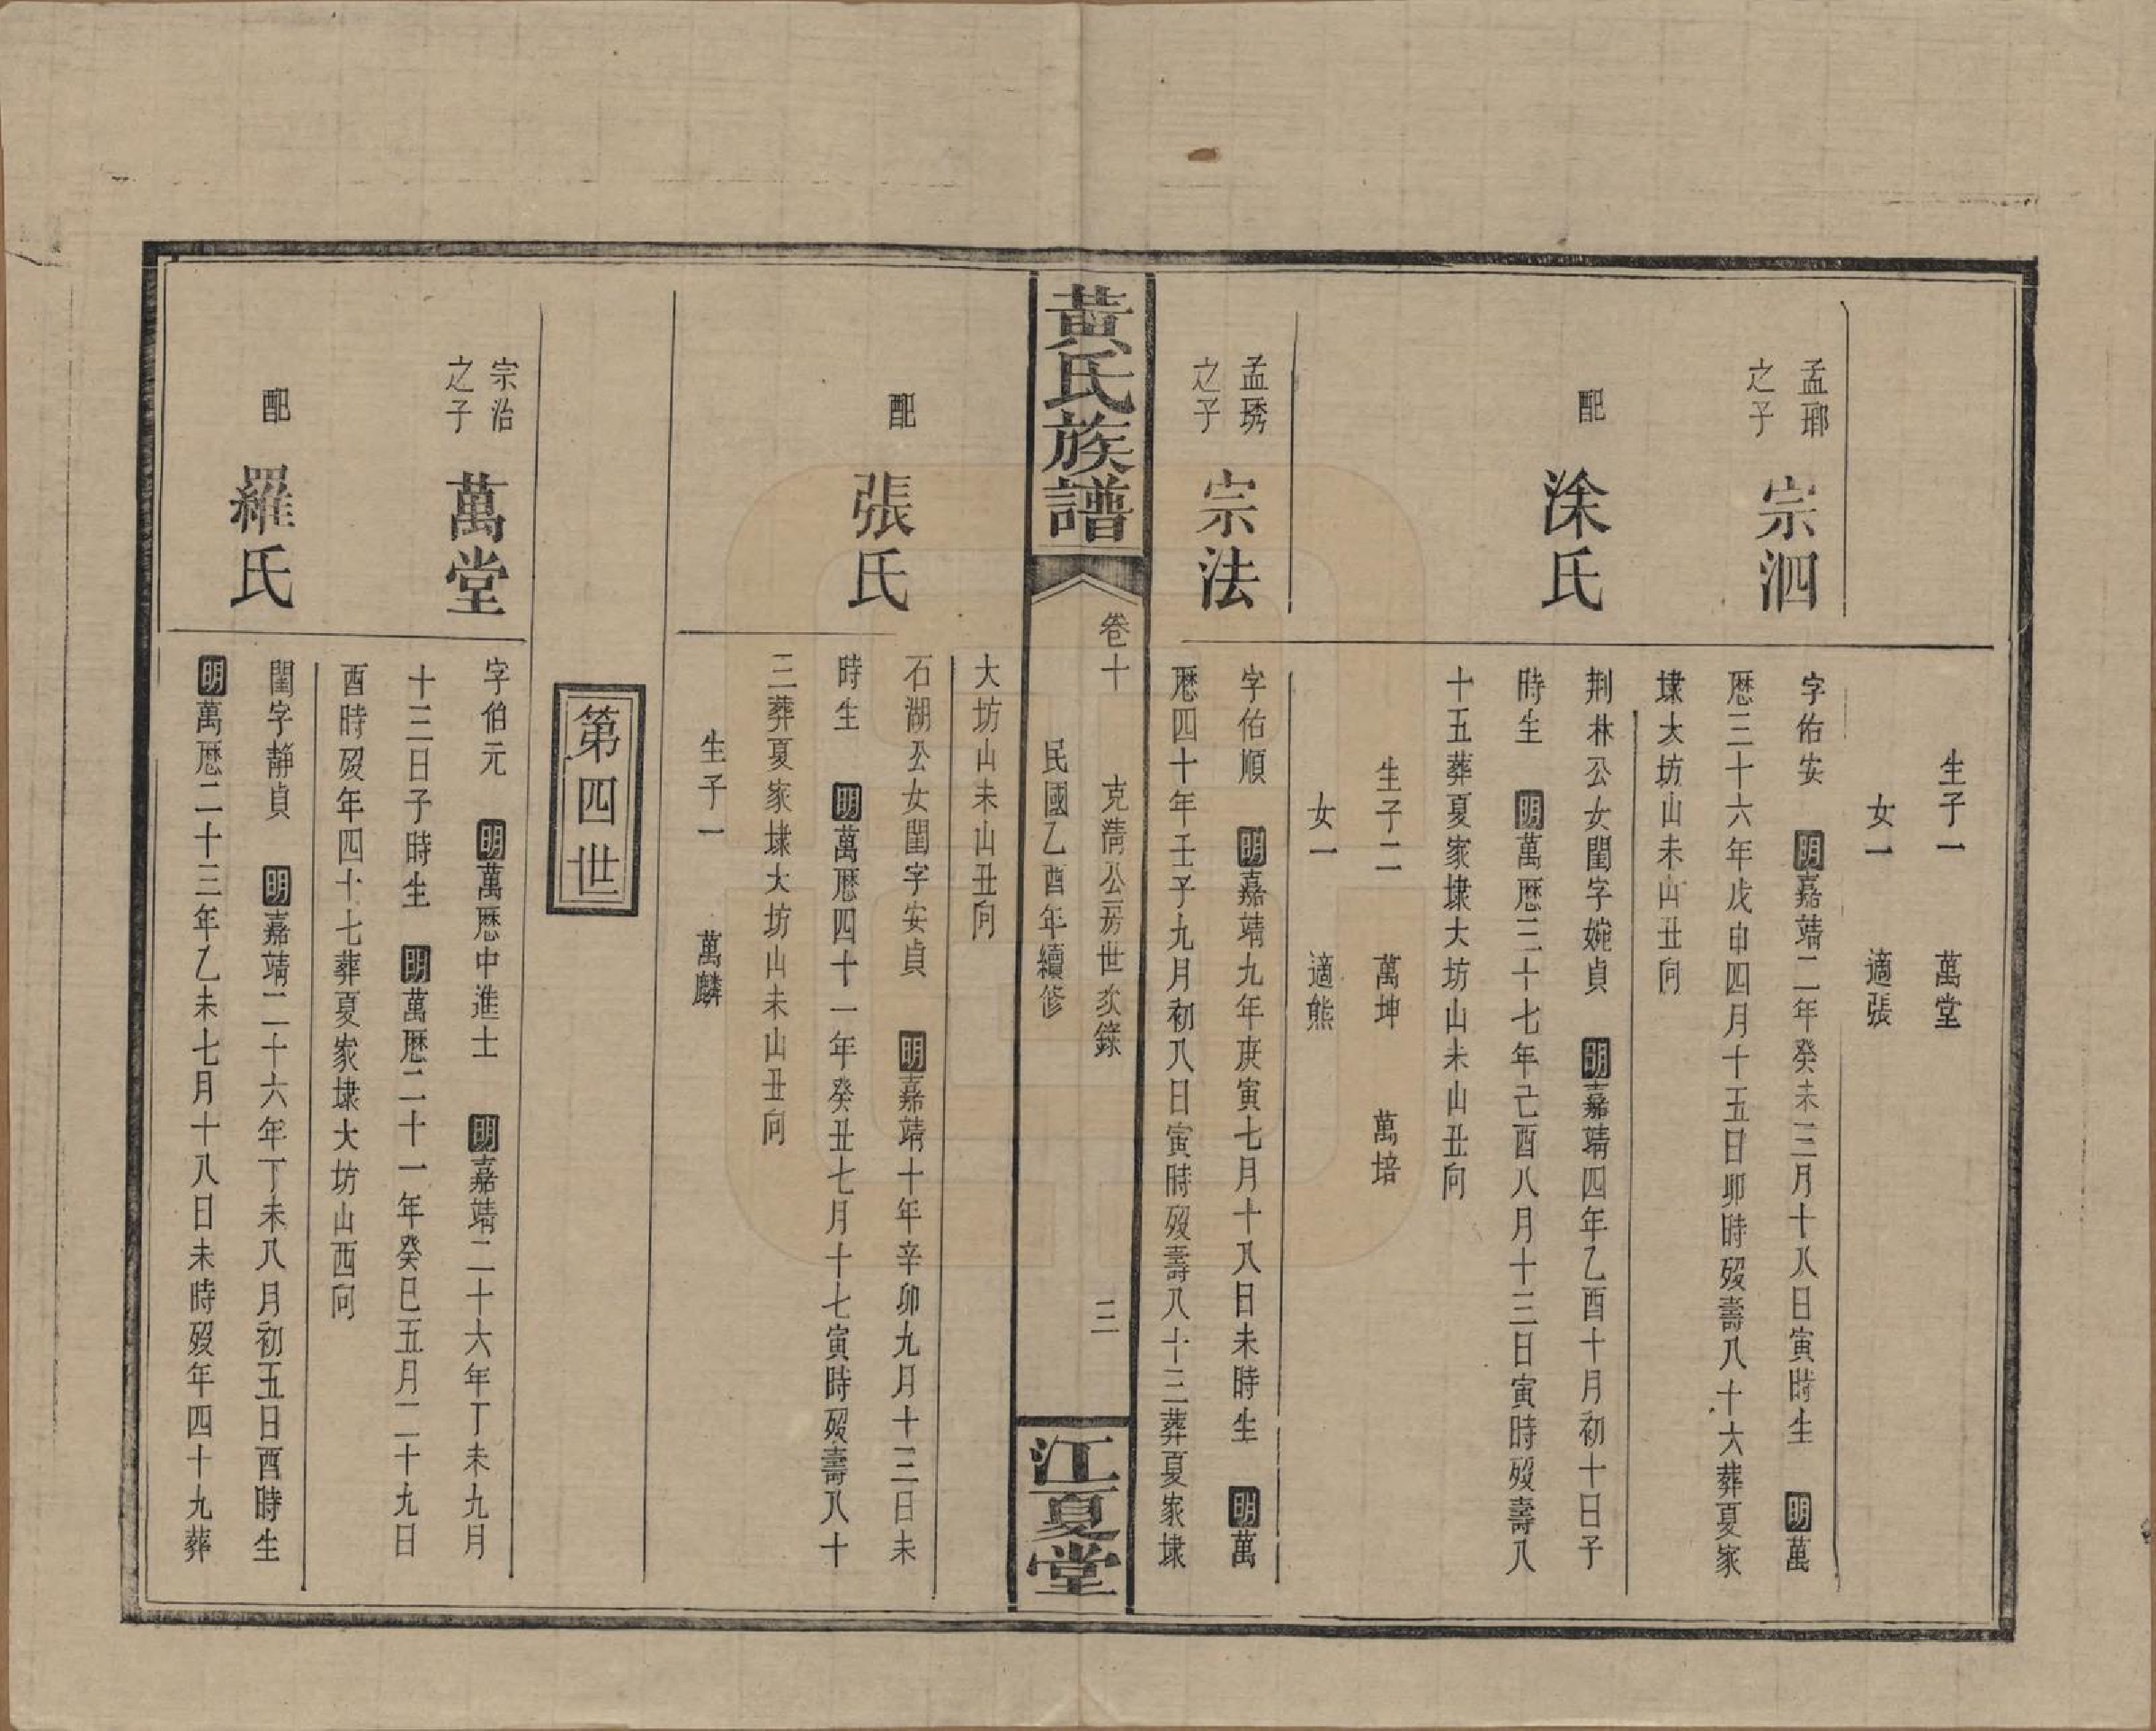 生子一　萬堂
女一　適張
孟瑯
之子
宗泗
字佑安　明嘉靖二年癸未三月十八日寅時生　明萬
歷三十六年戊申四月十五日卯時殁壽八十六葬夏家
埭大坊山未山丑向
配
涂氏
荆林公女閨字婉貞　明嘉靖四年乙酉十月初十日子
時生　明萬歷三十七年己酉八月十三日寅時殁壽八
十五葬夏家埭大坊山未山丑向
生子二　萬坤　萬培
女一　適熊
孟琇
之子
宗法
字佑順　明嘉靖九年庚寅七月十八日未時生　明萬
歷四十年壬子九月初八日寅時殁壽八十三葬夏家埭
黃氏族譜
卷十　克淸公房世次錄　三
民國乙酉年續修
江夏堂
大坊山未山丑向
配
張氏
石湖公女閨字安貞　明嘉靖十年辛卯九月十三日未
時生　明萬歷四十一年癸丑七月十七寅時殁壽八十
三葬夏家埭大坊山未山丑向
生子一　萬麟
第四世
宗治
之子
萬堂
字伯元　明萬歷中進士　明嘉靖二十六年丁未九月
十三日子時生　明萬歷二十一年癸巳五月二十九日
酉時殁年四十七葬夏家埭大坊山西向
配
羅氏
閨字靜貞　明嘉靖二十六年丁未八月初五日酉時生
明萬歷二十三年乙未七月十八日未時殁年四十九葬